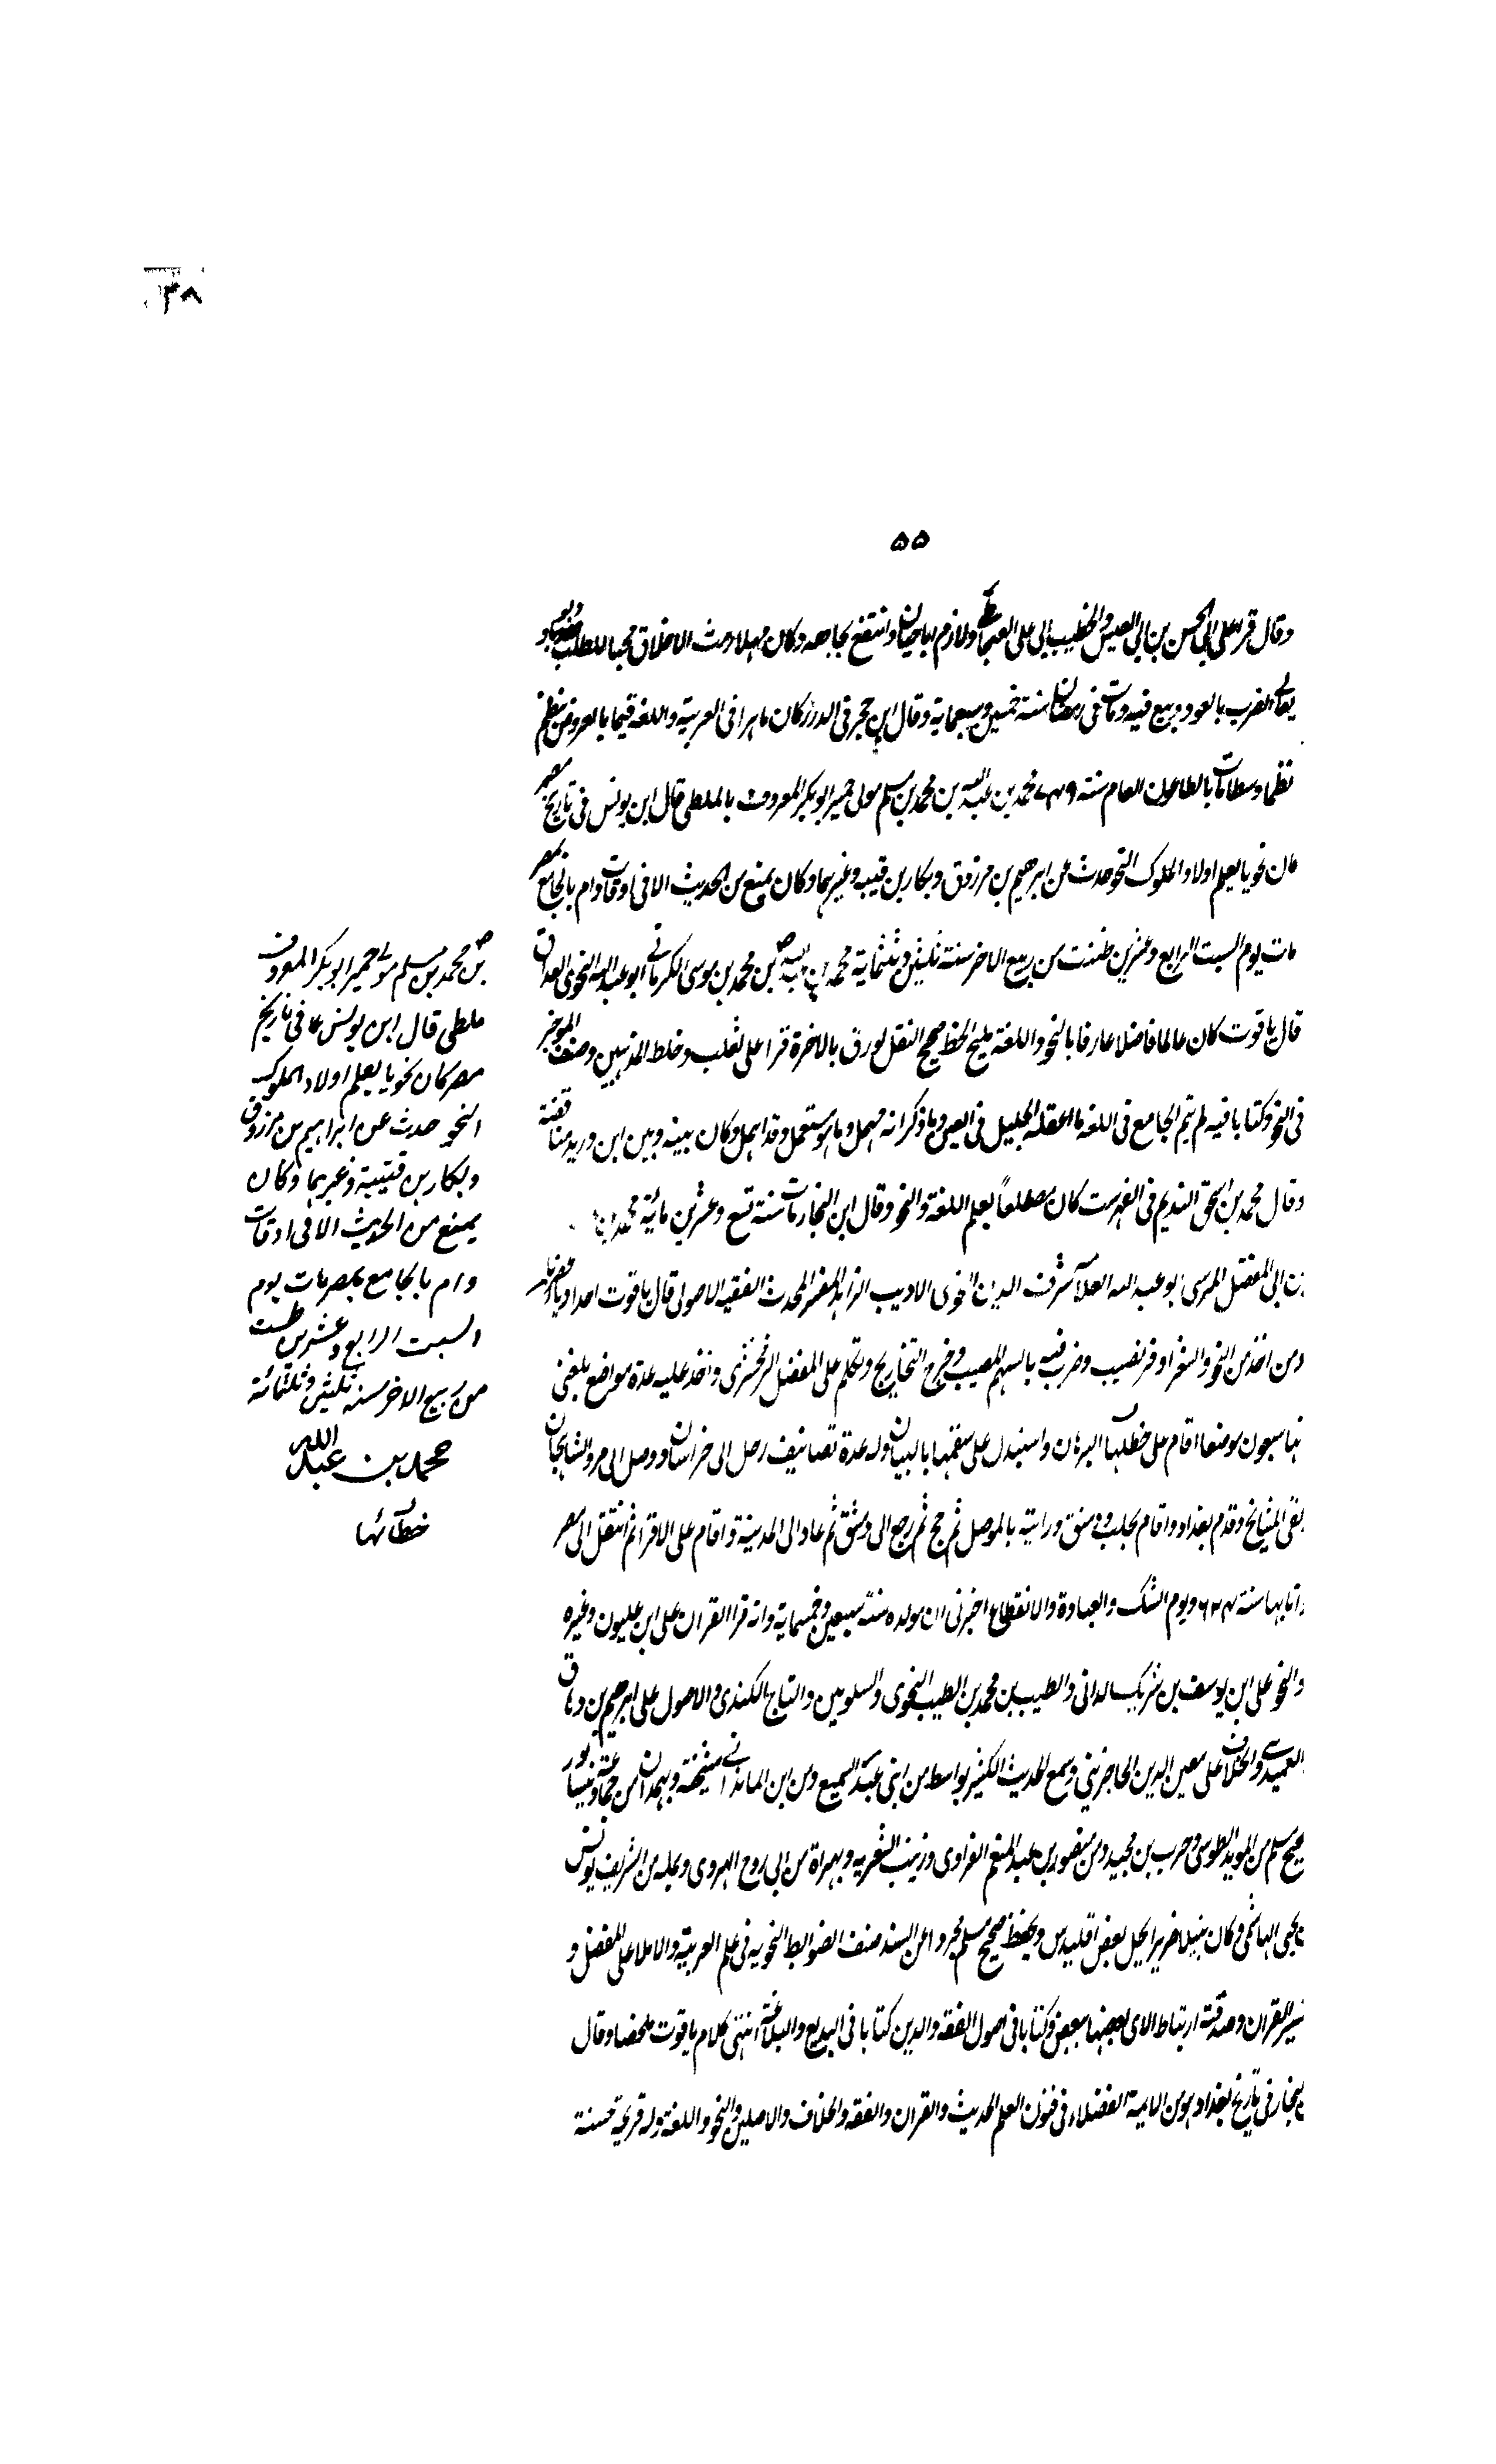 ٣٨
٥٥
وقال قرا على ابى الحسن بن ابى العيش والخطيب ابى على القيجاطى ولازم اباحيان وانتفع بجاهه وكان سهلا دمث الاخلاق محبا للطلب
يعانى الضرب بالعود ونبغ فيه ومات فى رمضان سنة خمسين وسبعماية وقال ابن حجر فى الدرر كان ماهرا فى العربية واللغة قيما بالعروض ينظم
نظما وسطا مات بالطاعون العام سنة ٧٤٩ محمد بن عبد الله بن محمد بن مسلم مولى حمير ابو بكر المعروف بالملطى قال ابن يونس فى تاريخ مصر
كان نحويا يعلم اولاد الملوك النحو حدث عن ابرهيم بن مرزوق وبكار بن قتيبه وغيرهما وكان يمنع من الحديث الا فى اوقات وام بالجامع بمصر
مات يوم السبت الرابع وعشرين طلنت من ربيع الاخر سنة ثلثين وثلثماية محمد بن عبد الله بن محمد بن موسى الكرمانى ابو عبد الله النحوى الوراق
قال ياقوت كان عالما فاضلا عارفا بالنحو واللغة مليح الخط صحيح النقل يورق بالاخرة قرا على ثعلب وخلط المذهبين وصنف الموجز
فى النحو وكتابا فيه لم يتم الجامع فى اللغة ما اغفله الخليل فى العين وما ذكر انه مهمل وهو مستعمل وقد اهمل وكان بينه وبين ابن دريد مناقضة
وقال محمد بن اسحق النديم فى الفهرست كان مضطلعاً بعلم اللغة والنحو وقال ابن النجار مات سنة تسع وعشرين مائية محمد بن
بن ابى الفضل المرسى ابو عبد الله العلامة شرف الدين النحوى الاديب الزاهد المفسر المحدث الفقيه الاصولى قال ياقوت احد ادباء عصرنا
ومن اخذ من النحو والشعر اوفر نصيب وضرب فيه بالسهم المصيب وخرج التخاريج وتكلم على المفصل للزمخشرى واخذ عليه عدة مواضع بلغنى
انها سبعون موضعا اقام على خطئها البرهان واستدل على سقمها بالبيان وله عدة تصانيف رحل الى خراسان ووصل الى مرو الشاهجان
ولقى المشايخ وقدم بغداد واقام بحلب ودمشق ورايته بالموصل ثم حج ثم رجع الى دمشق ثم عاد الى المدينة واقام على الاقرا ثم انتقل الى مصر
وانا بها سنة ٦٢٤ ويوم النسك والعبادة والانقطاع اخبرنى ان مولده سنة سبعين وخمسماية وانه قرا القران على ابن غلبون وغيره
والنحو على ابن يوسف بن شريك الدانى والطيب بن محمد بن الطيب النحوى والسلوبين والتاج الكندى والاصول على ابرهيم بن دماق
العميدى والخلاف على معين الدين الجاجرمى وسمع الحديث الكثير بواسط من ابنى عبد السميع ومن ابن المانداى مشيخته وبهمدان من جماعة ونيسابور
صحيح مسلم من المويد الطوسى وحرب بن مجيد ومن منصور بن عبد المنعم الفراوى وزينب الشعريه وبهراة من ابى روح الهروى وبمكه من الشريف يونس
بن يحيى الهاشمى وكان نبيلا ضريرا يحل بعض اقليدس ويحفظ صحيح مسلم مجردا عن السند صنف الضوابط النحويه فى علم العربية والاملا على المفصل و
تفسير القران وصد فيه ارتباط الاى بعضها ببعض وكتابا فى اصول الفقه والدين كتابا فى البديع والبلاغة انتهى كلام ياقوت ملخصا وقال
ابن النجار فى تاريخ بغداد هو من الايمة الفضلاء فى فنون العلم الحديث والقران والفقه والخلاف والاصلين والنحو واللغة وله قريحة حسنة
بن محمد بن مسلم مولى حمير ابو بكر المعروف
ملطى قال ابن يونس عا فى تاريخ
مصر كان نحويا يعلم اولاد الملوك
النحو حدث عن ابراهيم بن مرزوق
وبكار بن قتيبة وغيرهما وكان
يمنع من الحديث الا فى اوقات
وام بالجامع بمصر مات يوم
السبت الرابع وعشرين طلت
من ربيع الاخر سنه ثلثين وثلثمائة
محمد بن عبد الله
خطائها